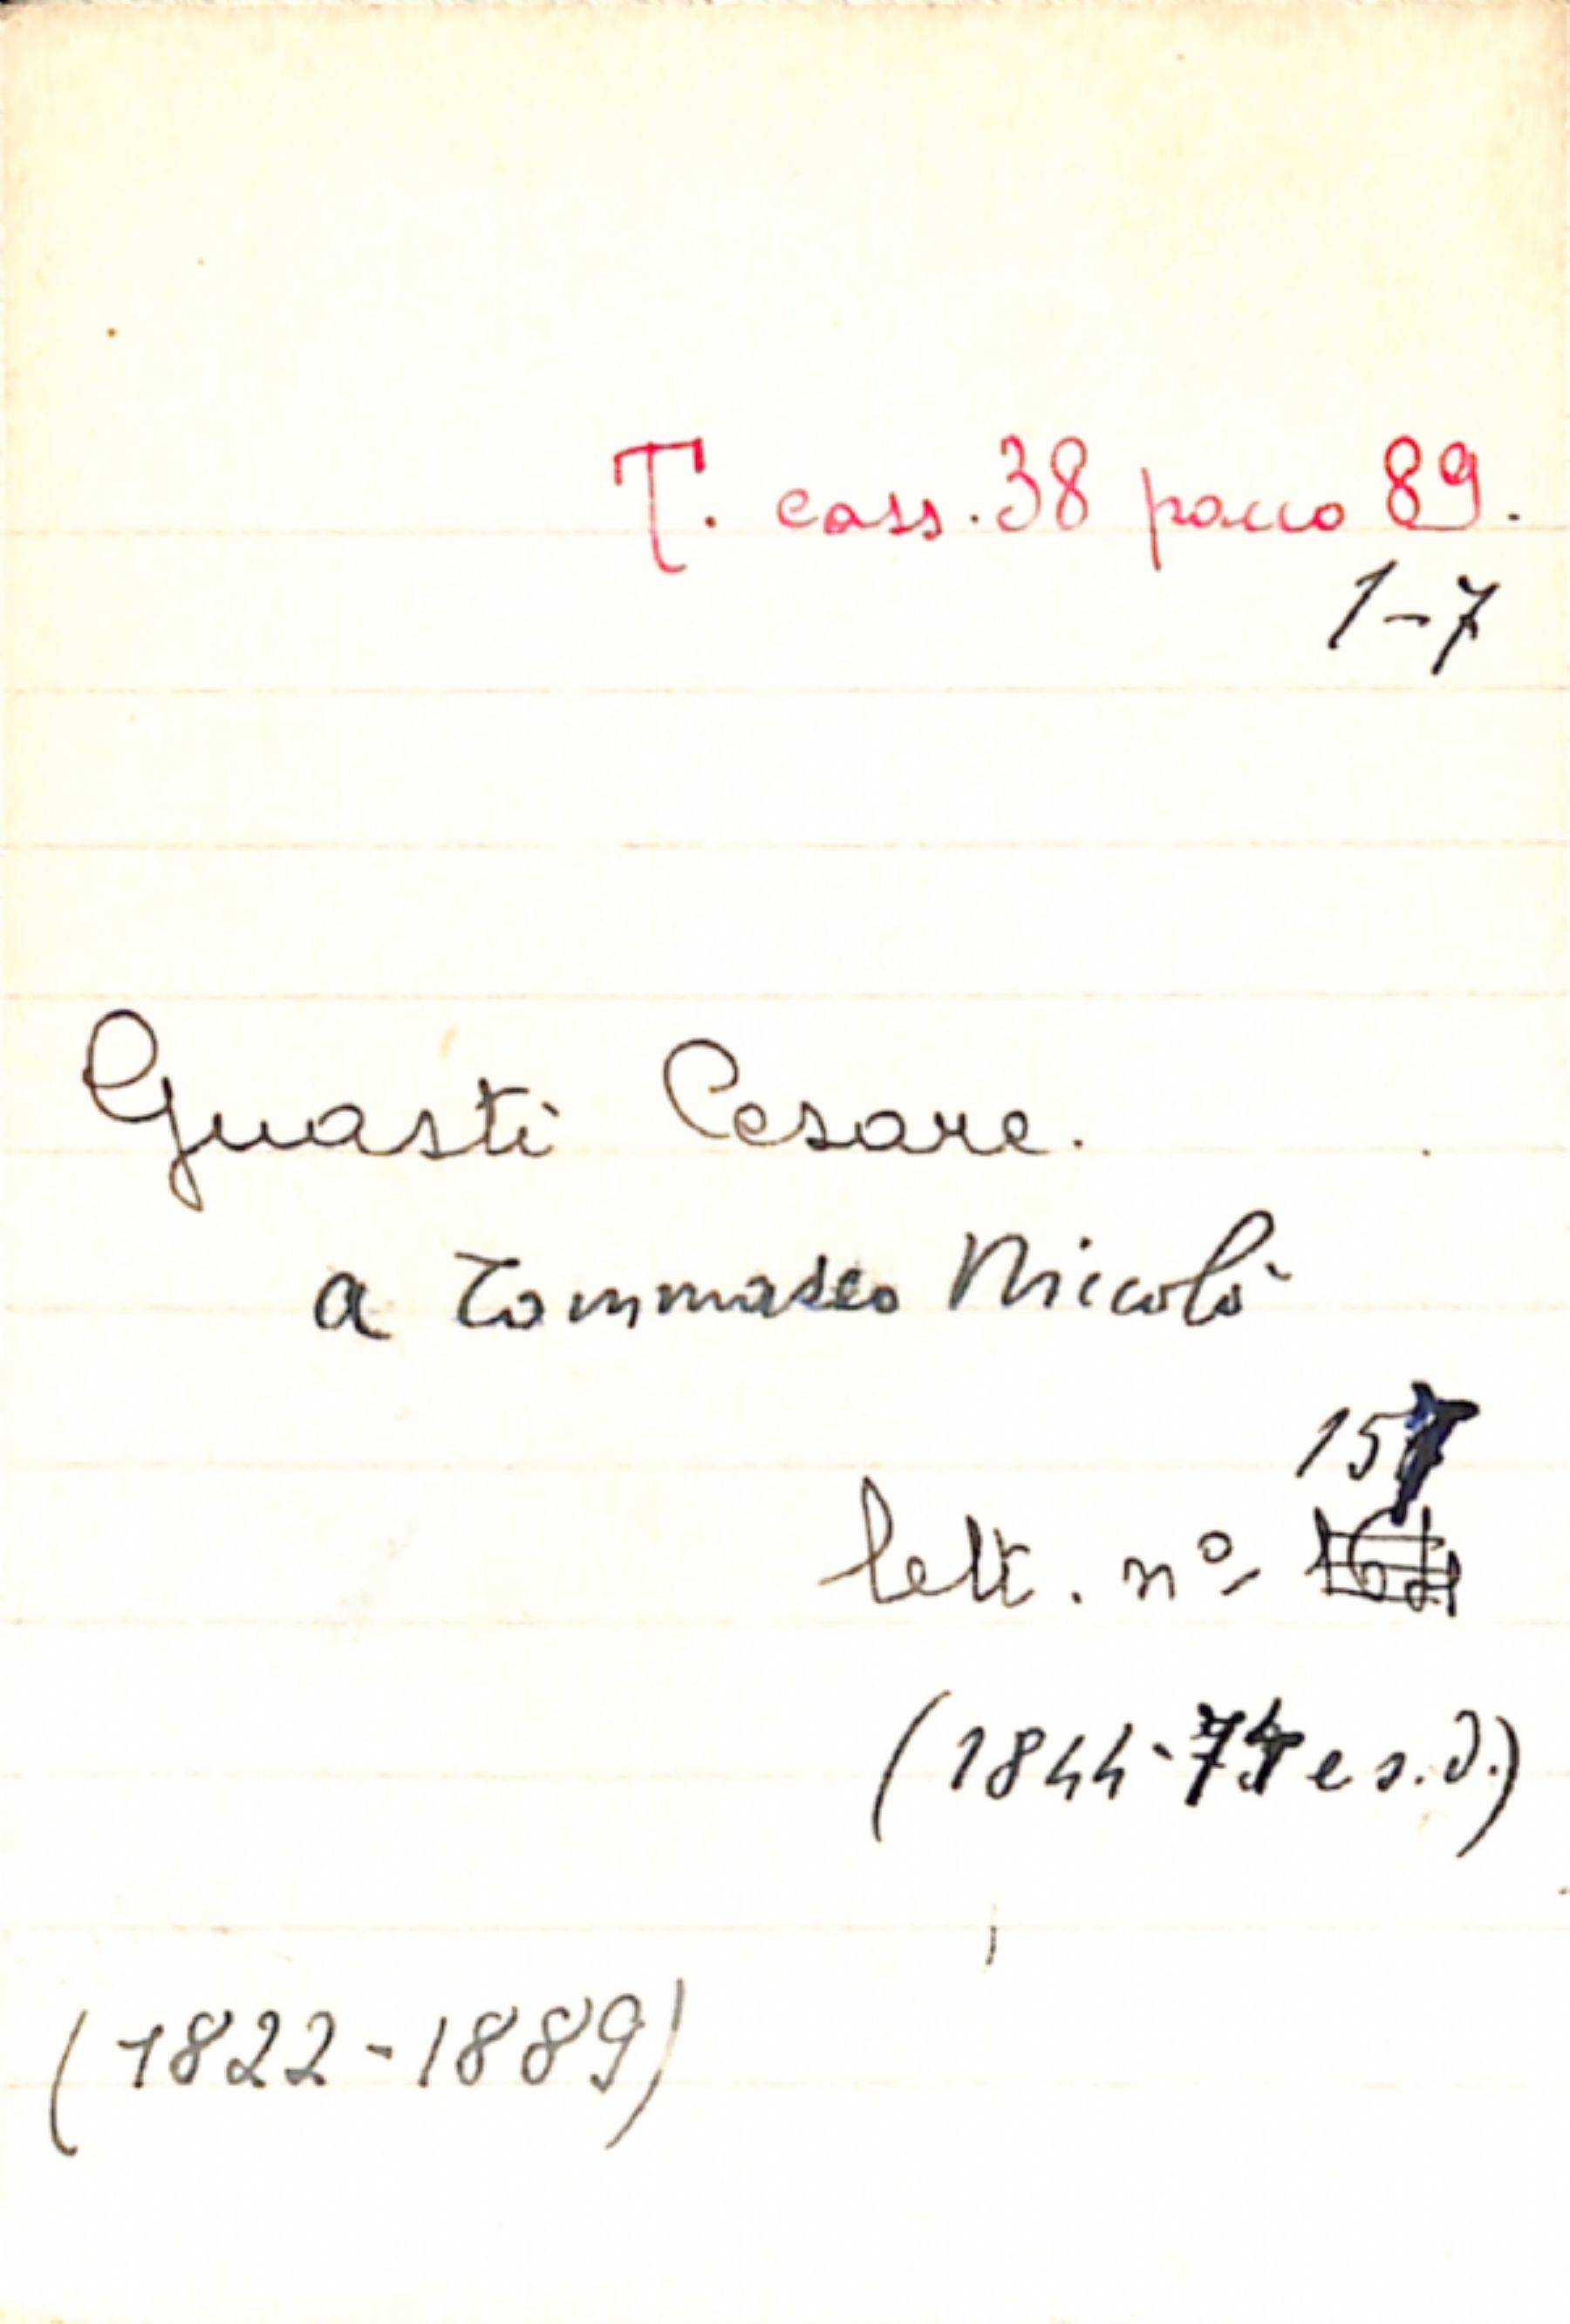 T. cass. 38 pacco 89.
1-7
Guasti Cesare.
a Tommaseo Nicolò
157
lett. nº
(1844-74 e s.d.)
(1822-1889)